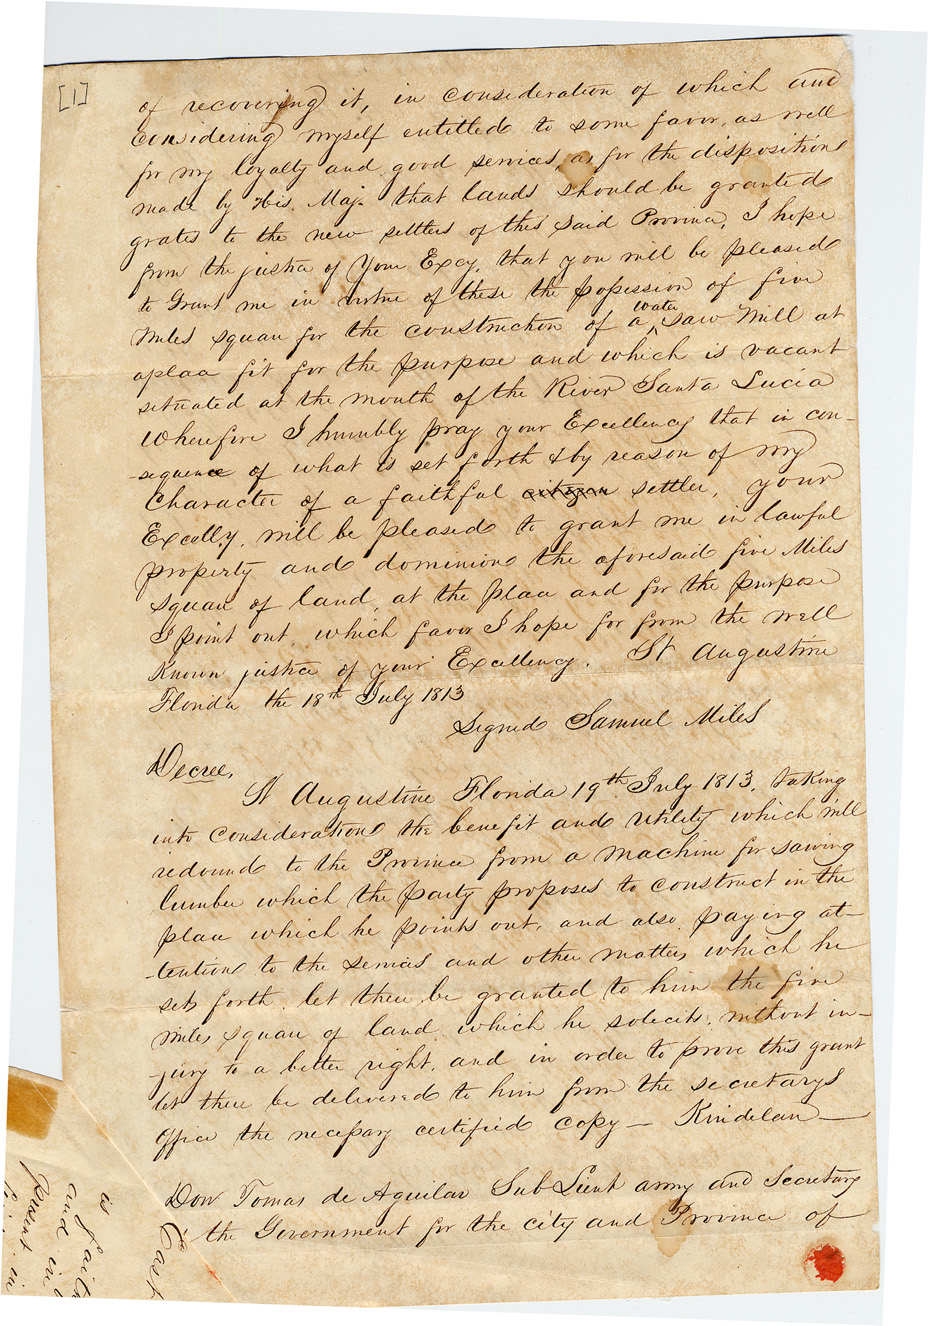 [1]
of recovering it, in consideration of which and
considering myself entitled to some favor, as well
for my loyalty and good services, as for the dispositions
made by His. Maj. that lands should be granted
gratis to the new settlers of this said Province, I hope
from the justice of Your Excy, that you will be pleased
to Grant me in virtue of these the possession of five
water
Miles square for the construction of a ^ Saw Mill at
aplace fit for the purpose and which is vacant
situated at the mouth of the River Santa Lucia
Wherefore I humbly pray your Excellency that in con-
-sequence of what is set forth & by reason of my
Character of a faithful citizen settler, your
Excelly. will be pleased to grant me in lawful
property and dominion the aforesaid five Miles
square of land, at the place and for the purpose
I point out, which favor I hope for from the well
Known justice of your Excellency. St Augustine
Florida the 18th July 1813
Signed Samuel Miles
Decree.
St Augustine Florida 19th July 1813. taking
into consideration the benefit and utility which will
redound to the Province from a machine for sawing
lumber which the party proposes to construct in the
place which he points out, and also paying at-
-tention to the services and other matters which he
sets forth. let there be granted to him the five
miles square of land which he solecits, without in-
-jury to a better right, and in order to prove this grant
let there be delivered to him from the secretarys
Office the necessary certified copy — Kindelan —
Don Tomas de Aguilar Sub Lieut army and Secretary
to the Government for the city and Province of
East
is fait
and in
present in